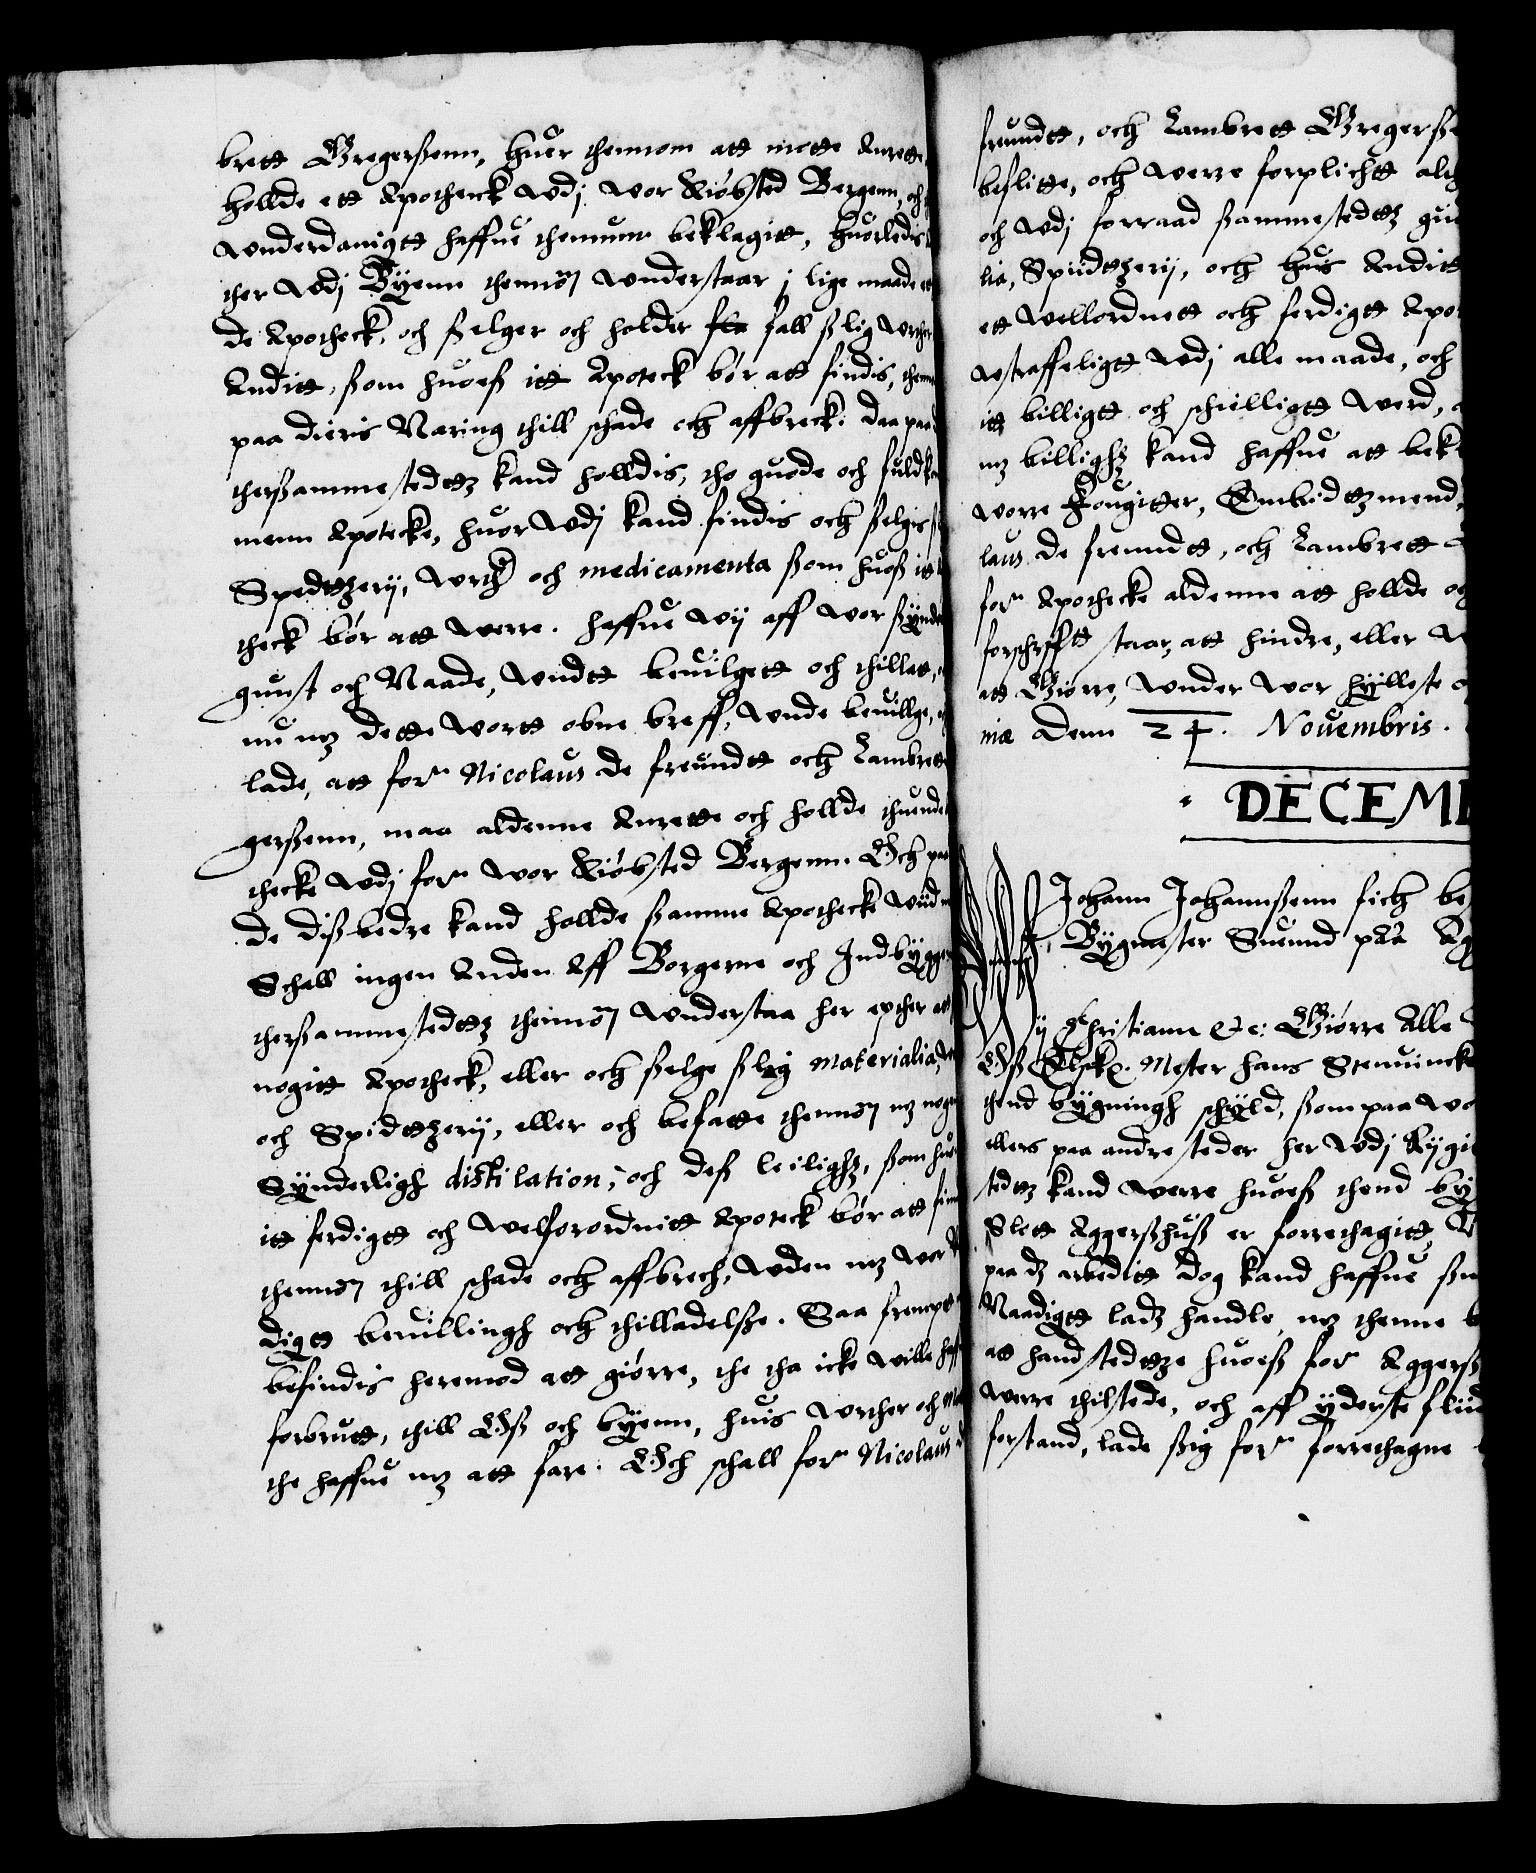 brett Gregerßenn, huer thennom att motte Anrette
hollde ett Apotheck Udj vor Kiöbsted Bergenn, och
Underdanigtt haffue thennum beklagitt, huorledis
ther Udj Byenn thennom Understaar j lige maade
de Apotheck, och ßelger och holder fla fall ßlig Urther
Anditt, ßom huoeß itt Apoteck bör att findis, thennom
paa dieris Næring thill schade och affbreck. Daa paa
therßammestedtz kand holldis, tho guode och fuldk
menn Apotecke, huor Udj kand findis och ßelgis
Spedtzerij, Urther och medicamenta ßom huoß itt
theck bör att Werre. Haffue Wij aff Vor ßynder
gunst och Naade, Undtt beuilgett och thillatt,
nu mz dette Vortt obne breff, Unde beuillge,
lade, att for. Nicolaus de freundtt och Lambrett
gerßenn, maa aldenne Anrette och hollde thuende
thecke Udj for. Vor Kiöbsted Bergenn. Och paa
de dißbedre kand hollde ßamme Apothecke Uiid
Schall ingen Anden Aff Borgerne och Indbygger
therßammestedtz thennom Understaa her epther att
nogitt Apotheck, eller och ßelge ßlig materialia,
och Spidtzerij, eller och befatte thennom mz nogen
Synderligh distilation, och deß leilighz, ßom huoeß
itt ferdigtt och Welforordnitt Apoteck bör att
thennom thill schade och affbrech, Uden mz Vor
digtt beuillingh och thilladelße. Saa frempt
befindis heremod att giörre, the tha icke Wille haffue
forbrutt, thill Oß och byenn, huis Urther och
the haffue mz att fare. Och schall for. Nicolaus
freundtt, och Lambrett Gregerße
beflitte, och Werre forplicht altid
och Udj forraad ßammestedtz
lia, Spiidtzerij, och huis Anditt
ett Wellordnett och ferdigtt Apot
Ustraffeligtt Udj alle maade, och
itt billigtt och schielligtt Werd,
mz billighz kand haffue att bek
Vorre Fougitter, Embidtzmend,
laus de freundtt, och Lambrett
for. Apothecke aldenne att hollde og
forschrffit staar, att hindre, eller
att Giörre, Under Vor hylleste
niæ Denn 24. Nouembris.
DECEM
Johann Johannßenn fich be
Bygmester Suennd paa Ag
Wij Christiann &c: Giörre Alle
Oß Elske. Mester Hans Stenuincke
thend bygningh schyld, ßom paa Vo
ellers paa andre steder her Udj Rygi
stedtz kand Werre huoeß thend by
Slott Aggerßhuß er forrethagitt,
paa dz arbeditt dog kand haffue
Naadigtt ladz handle, mz thenne
att hand stedtze huoeß for. Aggerß
Werre thilstede, och aff yderste fliid
forstand, lade ßig for. forrethagne